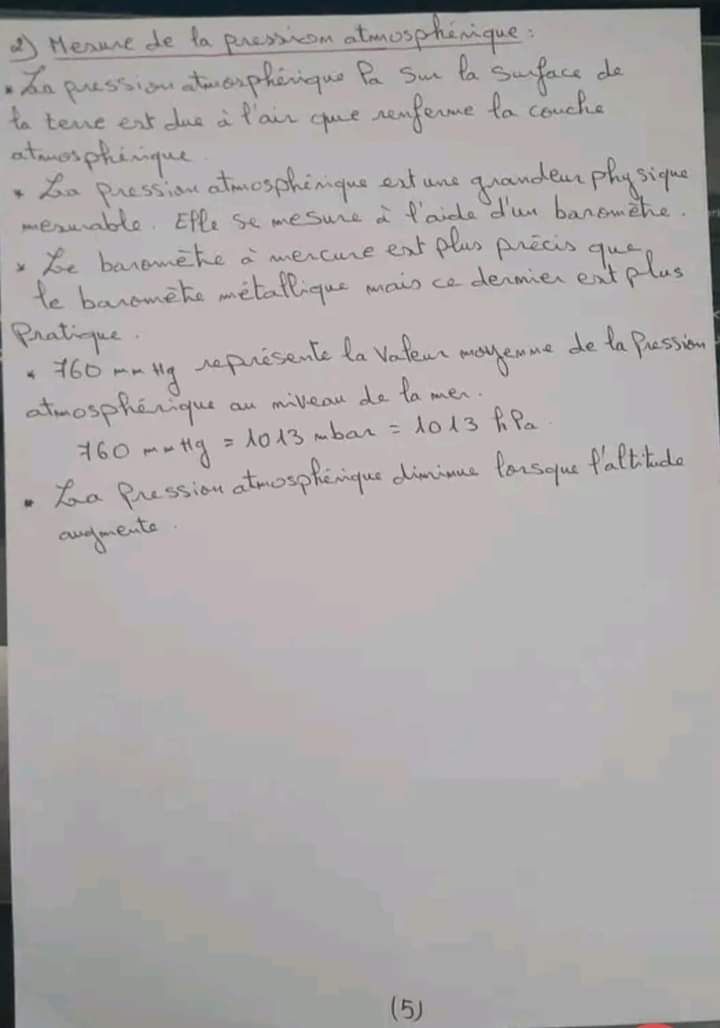 2) Mesure de la pression atmosphérique :
• La pression atmosphérique Pa sur la surface de
la terre est due à l'air que renferme la couche
atmosphérique.
* La pression atmosphérique est une grandeur physique
mesurable. Elle se mesure à l'aide d'un baromètre.
* Le baromètre à mercure est plus précis que
le baromètre métallique mais ce dernier est plus
Pratique.
* 760 mmHg représente la valeur moyenne de la Pression
atmosphérique au niveau de la mer.
760 mmHg = 1013 mbar = 1013 hPa.
• La Pression atmosphérique diminue lorsque l'altitude
augmente.
(5)